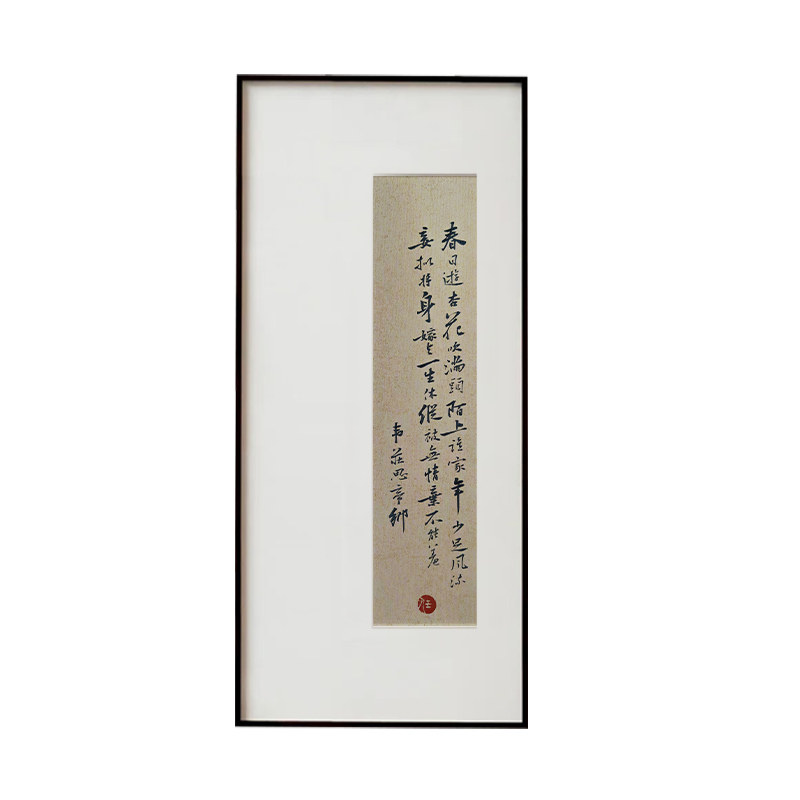 春日遊杏花吹满頭陌上誰家年少足風流
妾拟将身嫁与一生休縱被無情棄不能羞
韦莊思帝鄉
任